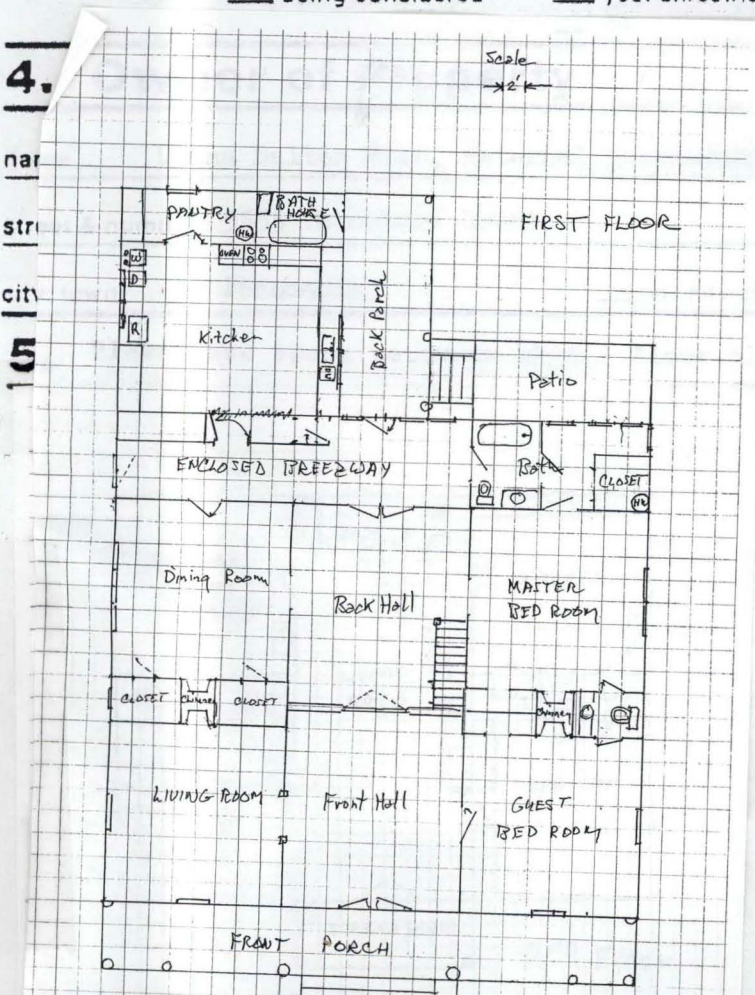 being considered
4.
Scale
2'
nar
PANTRY
BATH
HOUSE
FIRST FLOOR
str
HW
OVEN
W
D
city
R
Kitchen
Back Porch
5
Patio
ENCLOSED BREEZWAY
Bath
CLOSET
HW
Dining Room
Back Hall
MASTER
BED ROOM
CLOSET
Chimney
CLOSET
Chimney
LIVING ROOM
Front Hall
GUEST
BED ROOM
FRONT PORCH